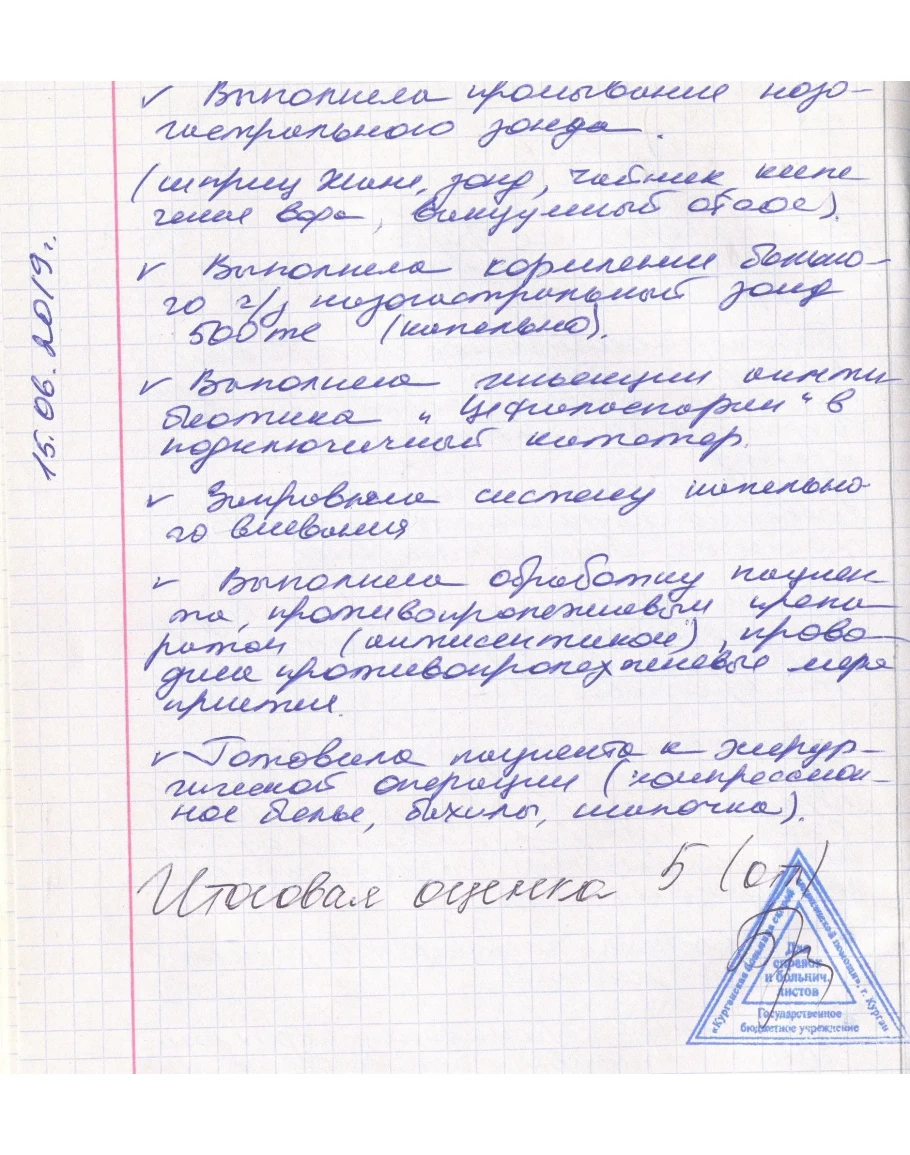 15.06.2019 г.
✓ Выполнила промывание назо-
гастрального зонда.
(шприц Жане, зонд, чайник кипе
ченая вода, вакуумный отсос).
✓ Выполнила кормлении больно-
го ч/з назогастральный зонд
500 мл (капельно).
✓ Выполнила иньекции анти
биотика „Цефалоспорин“ в
подключичный катетер.
✓ Заправляла систему капельно
го вливания
✓ Выполнила обработку пациен-
та, противопролежневым препа
ратом (антисептиком), прово-
дила противопролежневые меро
приятия.
✓ Готовила пациента к хирур-
гической операции (компрессион-
ное белье, бахилы, шапочка).
Итоговая оценка 5 (от)
«Курганская больница скорой медицинской помощи», г. Курган
Для
справок
и больнич.
листов
Государственное
бюджетное учреждение